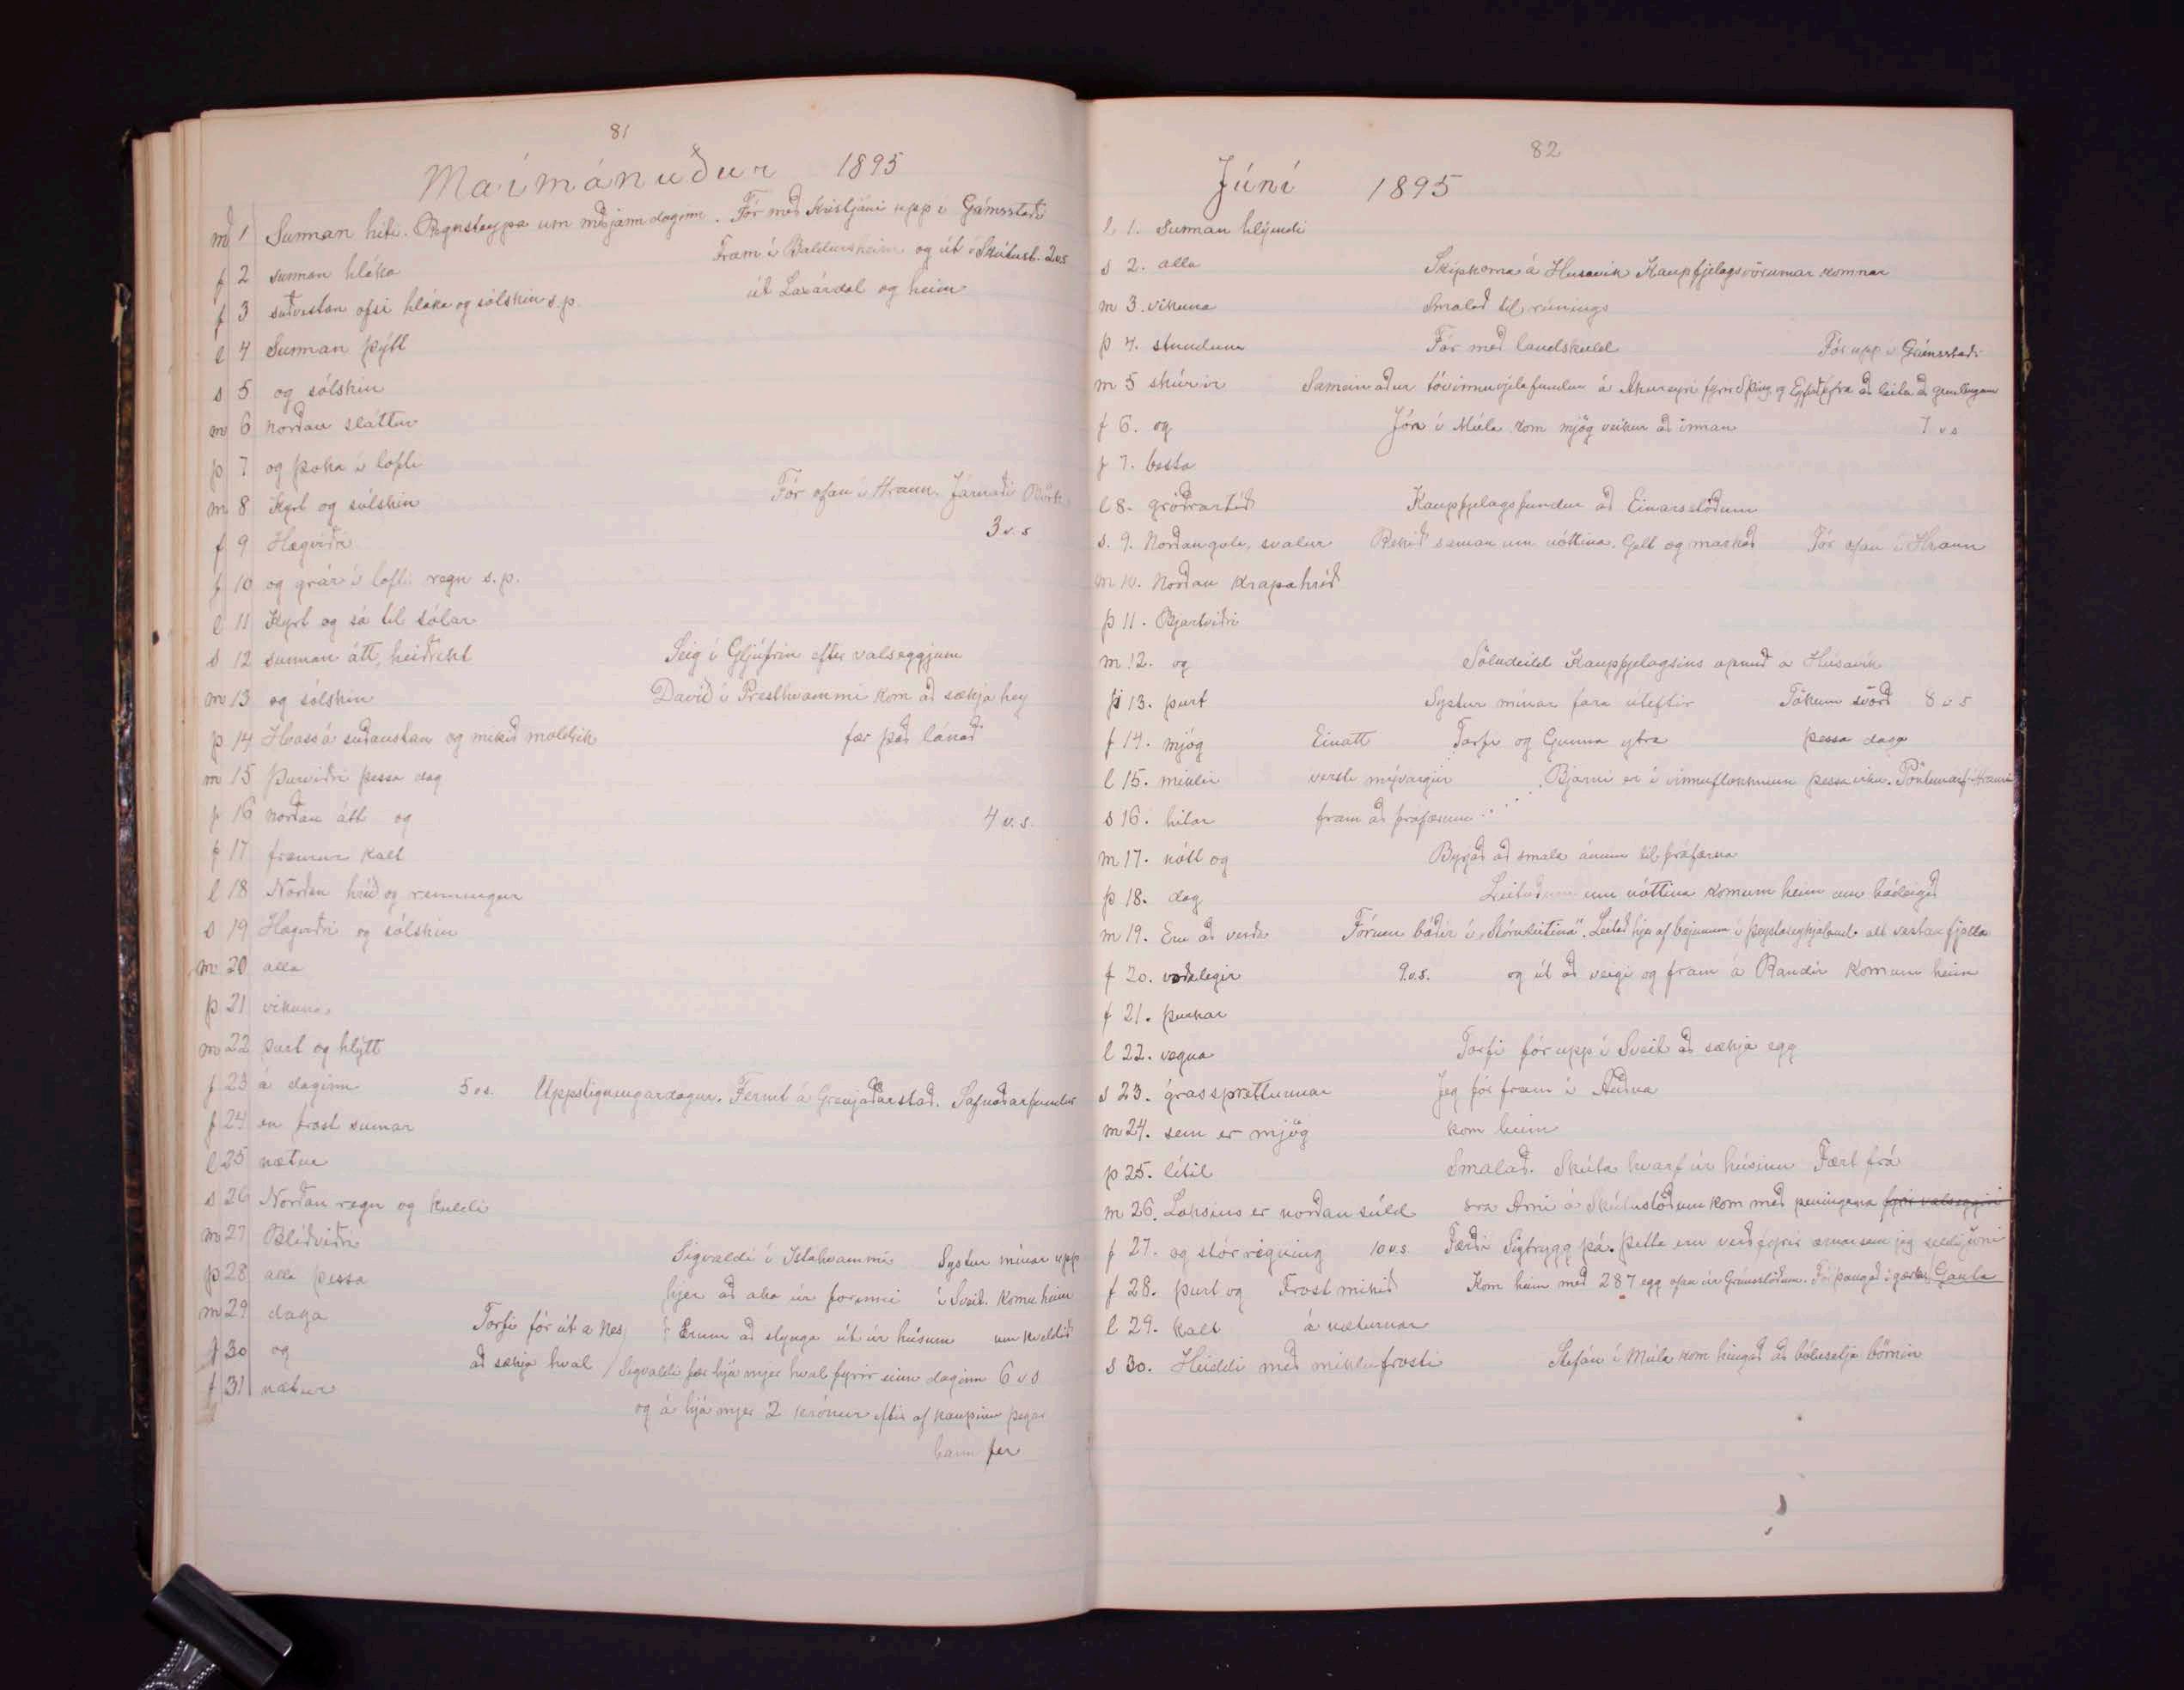 81
Maímánuður 1895
m 1 Sunnan hiti. Regnsteypa um miðjann daginn. Fór með Kristjáni upp í Grímsstaði
f 2 sunnan hláka Fram í Baldursheim og út í Skútust. 2 v.s
f 3 suðvestan ofsi hláka og sólskin s.p. út Laxárdal og heim
l 4 Sunnan þýtt
s 5 og sólskin
m 6 norðan sláttur
þ 7 og þoka í lofti
m 8 Kyrt og sólskin Fór ofan í Hraun. Járnaði
f 9 Hægviðri 3 v.s
f 10 og grár í lofti regn s.p.
l 11 Kyrt og sá til sólar
s 12 sunnan átt, heiðríkt Seig í Gljúfrin eftir valseggjum
m 13 og sólskin Davíð í Presthvammi kom að sækja hey
þ 14 Hvass á suðaustan og mikið moldrik fær það lánað
m 15 Þurviðri þessa dag
f 16 norðan átt og 4 v.s.
f 17 fremur kalt
l 18 Norðan hríð og renningur
s 19 Hægviðri og sólskin
m 20 alla
þ 21 vikuna
m 22 þurt og hlýtt
f 23 á daginn 5 v.s. Uppstigningardagur. Fermt á Grenjaðarstað. Safnaðarfundur
f 24 en frost sumar
l 25 nætur
s 26 Norðan regn og kuldi
m 27 Blíðviðri Sigvaldi í Ystahvammi Systur mínar upp
þ 28 alla þessa hjer að aka úr forinni í Sveit. Komu heim
m 29 daga Torfi fór út á Nes Erum að stynga út úr húsum um kveldið
f 30 og að sækja hval Sigvaldi fær hjá mjer hval fyrir einn daginn 6 v.s
f 31 nætur og á hjá mjer 2 krónur eftir af kaupinu þegar
hann fer
82
Júní 1895
l 1. Sunnan hlýindi
s 2. alla Skipkoma á Húsavík Kaupfjelagsvörurnar komnar
m 3. vikuna Smalað til rúnings
þ 4. stundum Fór með landskuld Fór upp í Grímsstaði
m 5 skúrir Sameinaður tóvinnuvjela fundur á Akureyri fyrir Þing. og Eyjafj. fra að leita að gemlingum
f 6. og Jón í Múla kom mjög veikur að innan 7 v s
f 7. besta
l 8. gróðrartíð Kaupfjelagsfundur að Einarsstöðum
s. 9. Norðangola, svalur Rekið saman um nóttina. Gelt og markað Fór ofan í Hraun
m 10. Norðan krapahríð
þ 11. Bjartviðri
m 12. og Söludeild Kaupfjelagsins opnuð á Húsavík
f 13. þurt Systur mínar fara úteftir Tökum svörð 8 v s
f 14. mjög Einatt Torfi og Gunna ytra þessa daga
l 15. miklir versti mývargur Bjarni er í vinnuflokknum þessa viku.
s 16. hitar fram að fráfærum
m 17. nótt og Byrjað að smala ánum til fráfærna
þ 18. dag Leituðum um nóttina komum heim um hádegið
m 19. Eru að verða Fórum báðir í "Stóruleitina". Leitað hjer af bæjunum í Þeystareykjaland alt vestan fjalla
f 20. voðalegir 9. v.s. og út að vegi og fram á Randir Komum heim
f 21. þurkar
l 22. vegna Torfi fór upp í Sveit að sækja egg
s 23. grassprettunnar Jeg fór fram í Auðna
m 24. sem er mjög kom heim
þ 25. lítil Smalað. Skúta hvarf úr húsinu Fært frá
m 26. Loksins er norðan súld sra Árni á Skútustöðum kom með peningana fyrir valseggin
f 27. og stórrigning 10 v.s. Færði Sigtrygg þá. Þetta eru verð fyrir
f 28. þurt og Frost mikið Kom heim með 287 egg ofan úr Grímsstöðum. Fór þangað í gær
l 29. kalt á næturnar
s 30. Heiddi með miklu frosti Stefán í Múla kom hingað að bólusetja börnin